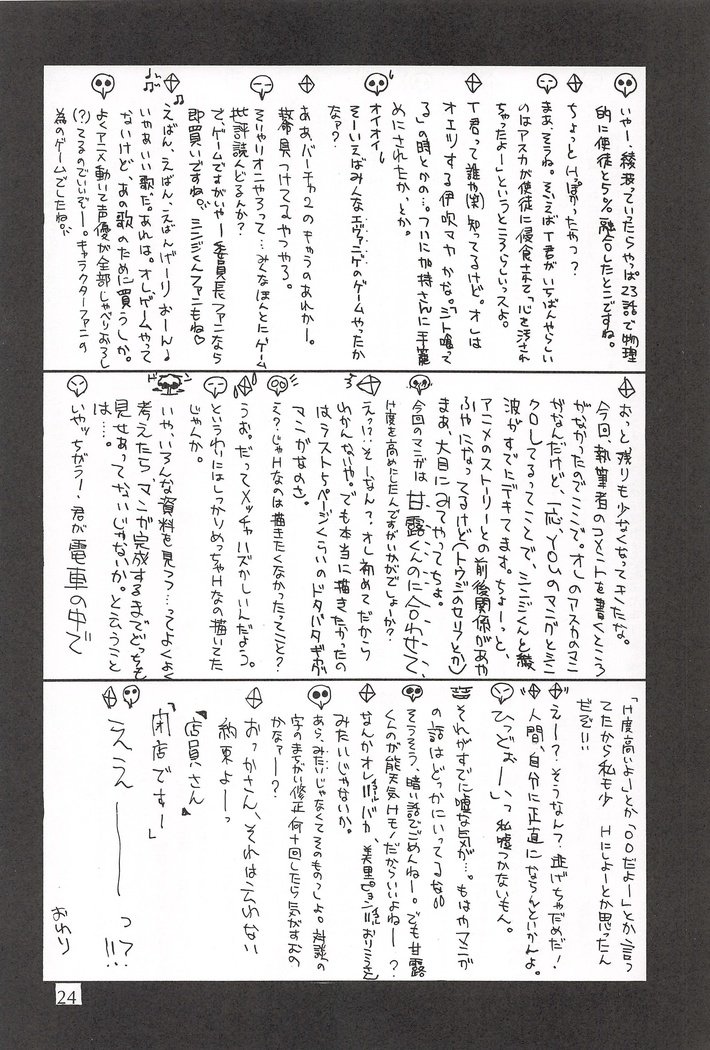 いやー、綾波っていたらやっぱ23話で物理
的に使徒と5%融合したとこですね。
ちょっとHっぽかったやつ？
まあそうね。そういえばT君がいちばんやらしい
のはアスカが使徒に侵食されて「心を汚され
ちゃったよー」というところらしいっスよ。
T君って誰や(笑)知ってるけど。オレは
オエツする伊吹マヤかな。「ミト喰って
る」の時とかの…。ついに加持さんに手籠
めにされたか、とか。
オイオイ
そーいえばみんなエヴァンゲのゲームやったか
なぁ？
ああ、バーチャ2のキャラのあれかー。
着つけてるやつやろ。
そいやりオニやろって…みんなほんとにゲーム
批評読んどるんか？
でゲームですがいやー委員長ファンなら
即買いですね。シンジくんファンもね♡
えばん、えばん、えばんげーりおーん♪
いやぁいい歌だ。あれは。オレゲームやって
ないけど、あの歌のために買うしか。
よくアニメ動いて声優が全部しゃべりおろし
(？)てるのでいいぞー。キャラクターファンの
為のゲームでしたね。
おっと残りも少なくなってきたな。
今回、執筆者のコメントを書くところ
がなかったのでここで。オレのアスカのマン
ガなんだけど、一応、YOUのマンガとシン
クロしてるってことで、シンジくんと綾
波がすでにデキてます。ちょーっと、
アニメのストーリーとの前後関係があや
ふやになってるけど(トウジのセリフとか)
まあ、大目にみてやってちょ。
今回のマンガは甘露くんのに合わせて、
H度を高めにしたんですがいかがでしょーか？
えっ!?そーなん？、オレ初めてだから
わかんないや。でも本当に描きたかったの
はラスト5ページくらいのドタバタギャグ
マンガなのさ。
え？じゃHなのは描きたくなかったってこと？
うお。だってメッチャハズかしいんだよう。
というわりにはしっかりめっちゃHなの描いてた
じゃんか。
いや、いろんな資料を見つつ…ってよくよく
考えたらマンガ完成するまでどっちも
見せあってないじゃないか。と云うこと
は…。
いやッちがうー・君が電車の中で
「H度高いよー」とか「〇〇だよー」とか言っ
てたから私も少しHにしよーとか思ったん
だぞ!!
えー？そうなん？、逃げちゃだめだ！
人間、自分に正直にならんといかんよ。
ひっどぉーいっ私嘘つかないもん。
それがすでに嘘な気が…。もはやマンガ
の話はどっかにいってるな。
そうそう、暗い話でごめんねー。でも甘露
くんのが能天気Hモノだからいいよねー？
なんかオレ=バカ、美里ピョン=おりこうさん
みたいじゃないか。
あら、みたいじゃなくてそのものっしょ。対談の
字のまちがい修正何十回したら気がすむの
かなァー？
おっかさん、それは云わない
約束よーっ
店員さん
「閉店ですー」
ええーーーっ?!!
おわり
24